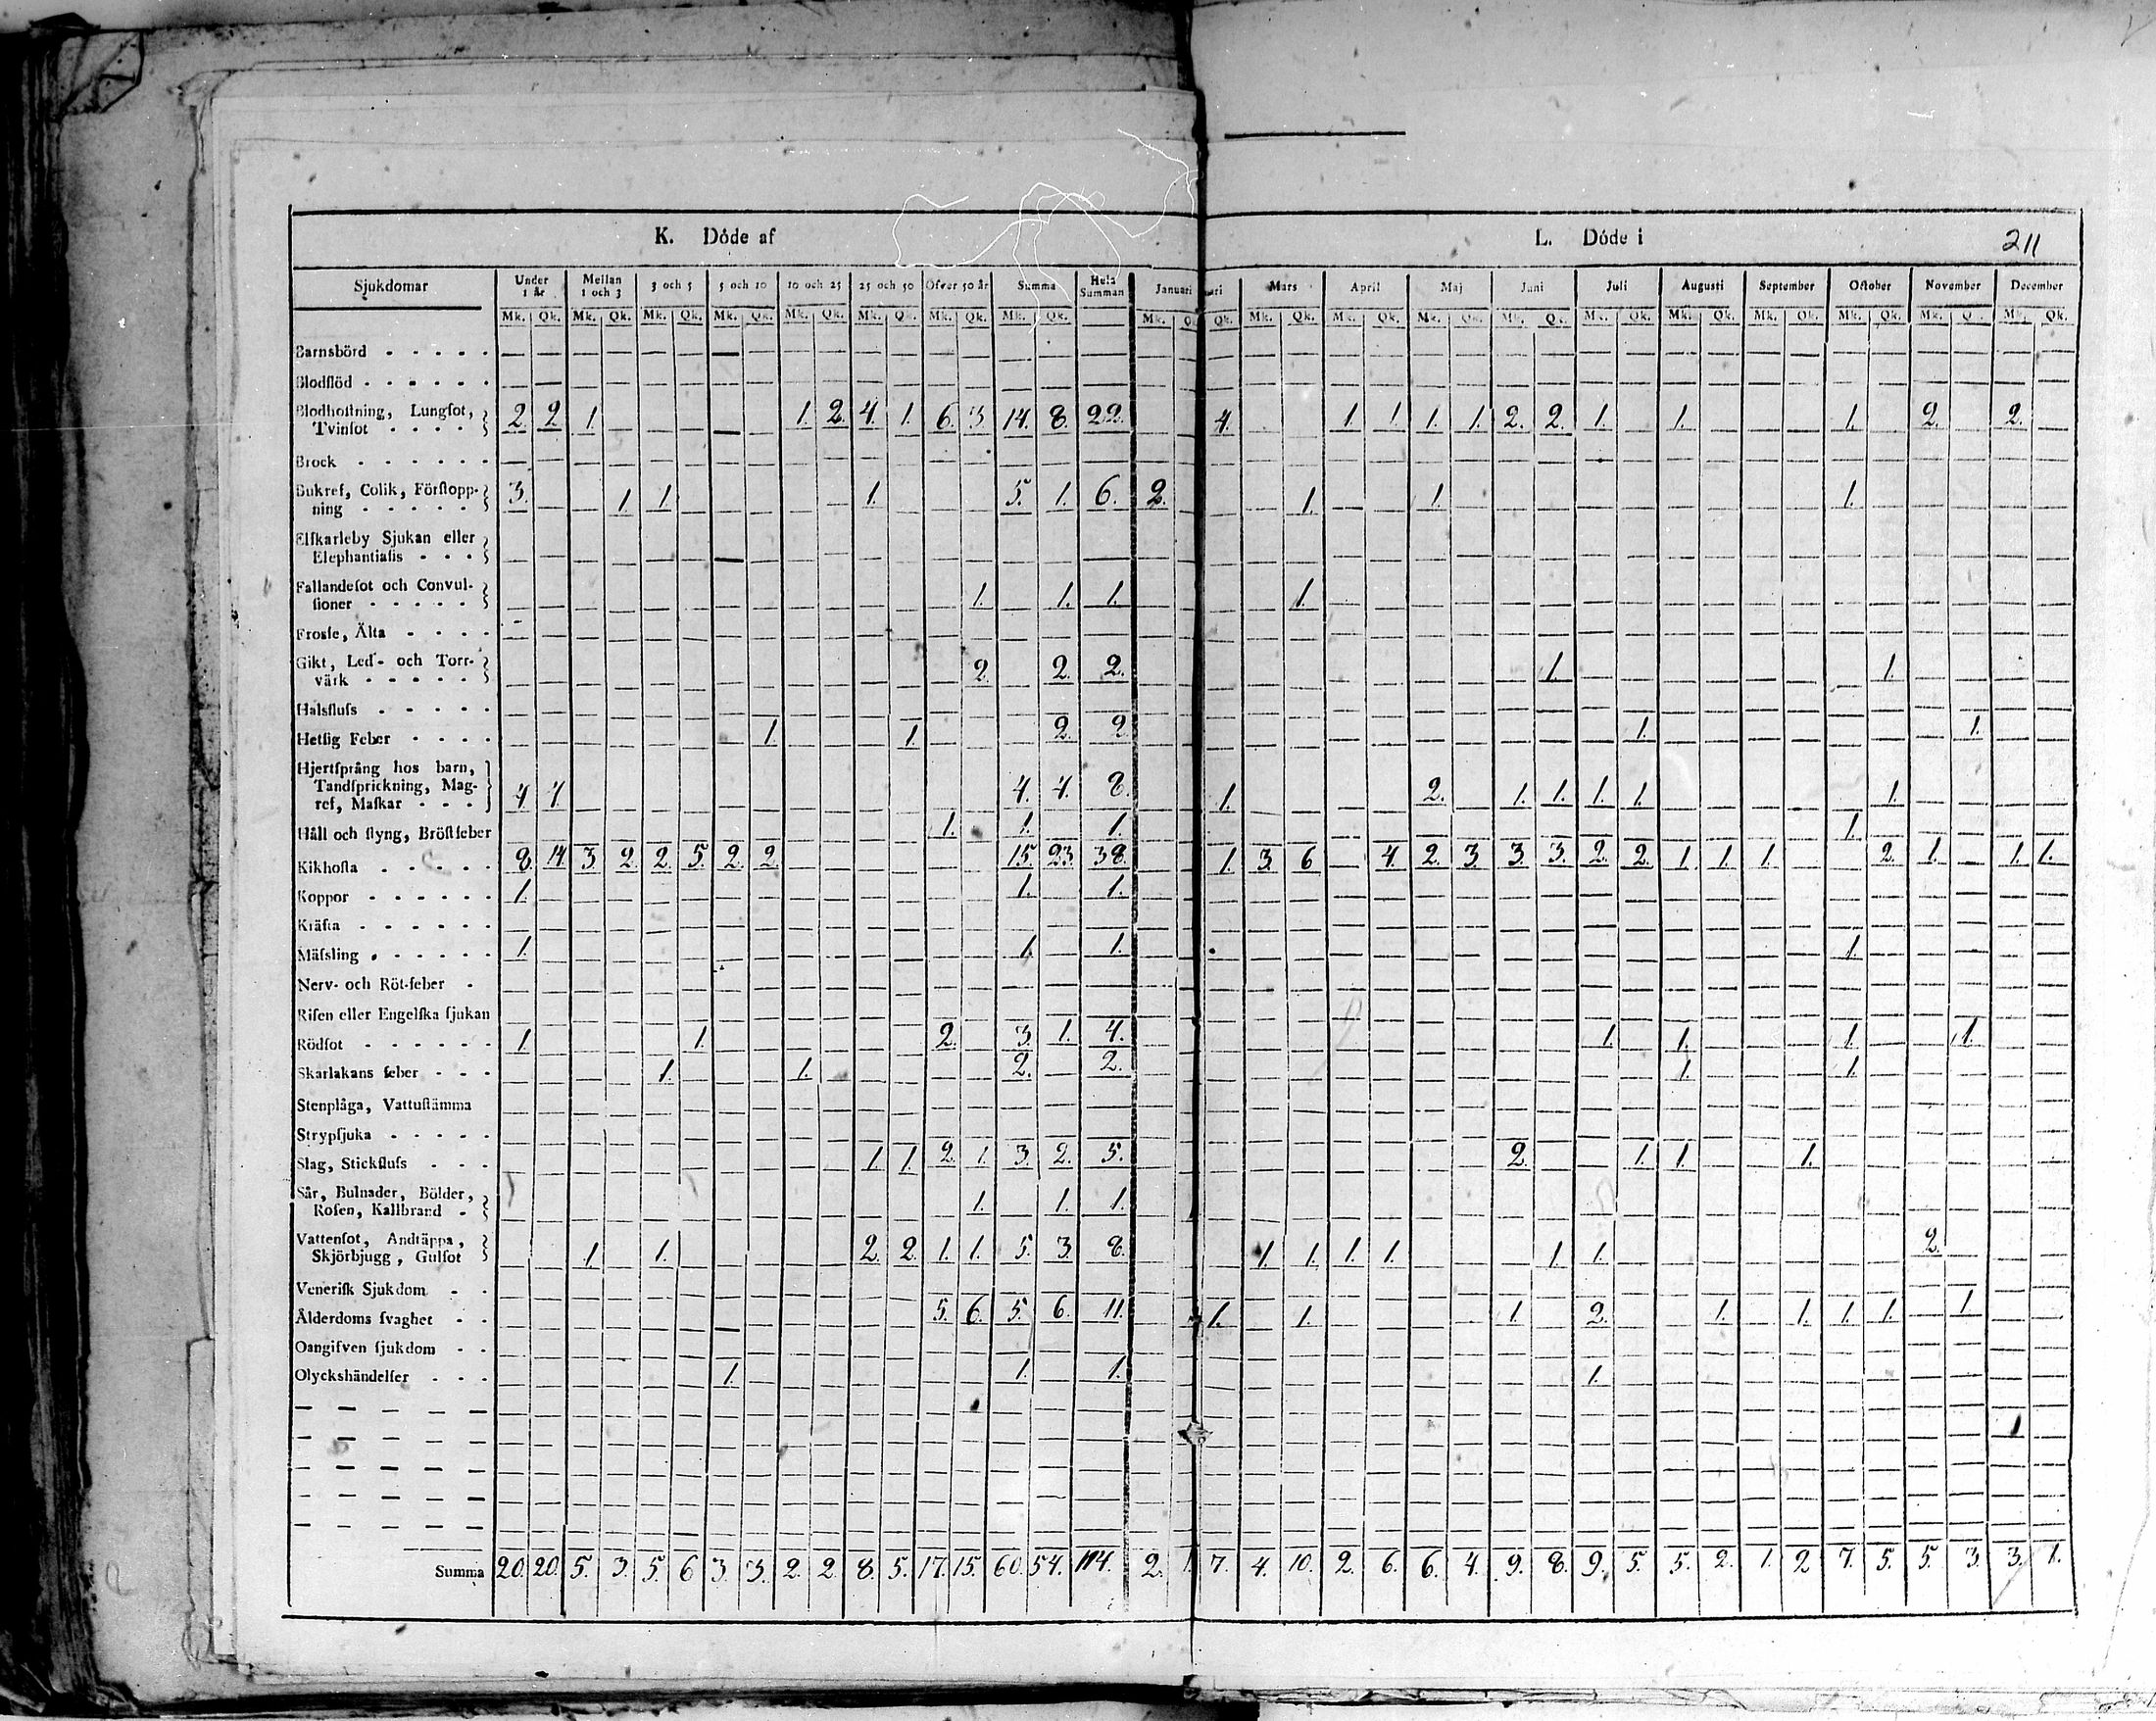 K. Döde af L. Döde i 211
Sjukdomar Under 1 år Mellan 1 och 3 3 och 5 5 och 10 10 och 25 25 och 50 Öfver 50 år Summa Hela Summan Januari ari Mars April Maj Juni Juli Augusti September October November December
Mk. Qk. Mk. Qk. Mk. Qk. Mk. Qk. Mk. Qk. Mk. Qk. Mk. Qk. Mk. Qk. Mk. Qk. Mk. Qk. Mk. Qk. Mk. Qk. Mk. Qk. Mk. Qk. Mk. Qk. Mk. Qk. Mk. Qk. Mk. Qk. Mk. Qk.
Barnsbörd
Blodflöd
Blodhostning, Lungsot,
Tvinsot 2. 2. 1. 1. 2. 4. 1. 6. 3. 14. 8. 22. 4. 1. 1. 1. 1. 2. 2. 1. 1. 1. 2. 2.
Brock
Bukref, Colik, Förstopp-
ning 3. 1. 1. 1. 5. 1. 6. 2. 1. 1. 1.
Elfkarleby Sjukan eller
Elephantiasis
Fallandesot och Convul-
sioner 1. 1. 1. 1.
Frossa, Älta
Gikt, Led- och Torr-
värk 2. 2. 2. 1. 1.
Halsfluss
Hetsig Feber 1. 1. 2. 2. 1. 1.
Hjertsprång hos barn,
Tandsprickning, Mag-
ref, Maskar 4. 4. 4. 4. 8. 1. 2. 1. 1. 1. 1. 1.
Håll och styng, Bröstfeber 1. 1. 1. 1.
Kikhosta 8. 14. 3. 2. 2. 5. 2. 2. 15. 23. 38. 1. 3. 6. 4. 2. 3. 3. 3. 2. 2. 1. 1. 1. 2. 1. 1. 1.
Koppor 1. 1. 1.
Kräfta
Mässling 1. 1. 1. 1.
Nerv- och Röt-feber
Risen eller Engelska sjukan
Rödsot 1. 1. 2. 3. 1. 4. 1. 1. 1. 1.
Skarlakans feber 1. 1. 2. 2. 1. 1.
Stenplåga, Vattustämma
Strypsjuka
Slag, Stickfluss 1. 1. 2. 1. 3. 2. 5. 2. 1. 1. 1.
Sår, Bulnader, Bölder,
Rosen, Kallbrand 1. 1. 1.
Vattensot, Andtäppa,
Skjörbjugg, Gulsot 1. 1. 2. 2. 1. 1. 5. 3. 8. 1. 1. 1. 1. 1. 1. 2.
Venerisk Sjukdom
Ålderdoms svaghet 5. 6. 5. 6. 11. 1. 1. 1. 2. 1. 1. 1. 1. 1.
Oangifven sjukdom
Olyckshändelser 1. 1. 1. 1.
Summa 20. 20. 5. 3. 5. 6 3. 3. 2. 2. 8. 5. 17. 15. 60. 54. 114. 2. 1. 7. 4. 10. 2. 6. 6. 4. 9. 8. 9. 5. 5. 2. 1. 2 7. 5. 5. 3. 3. 1.